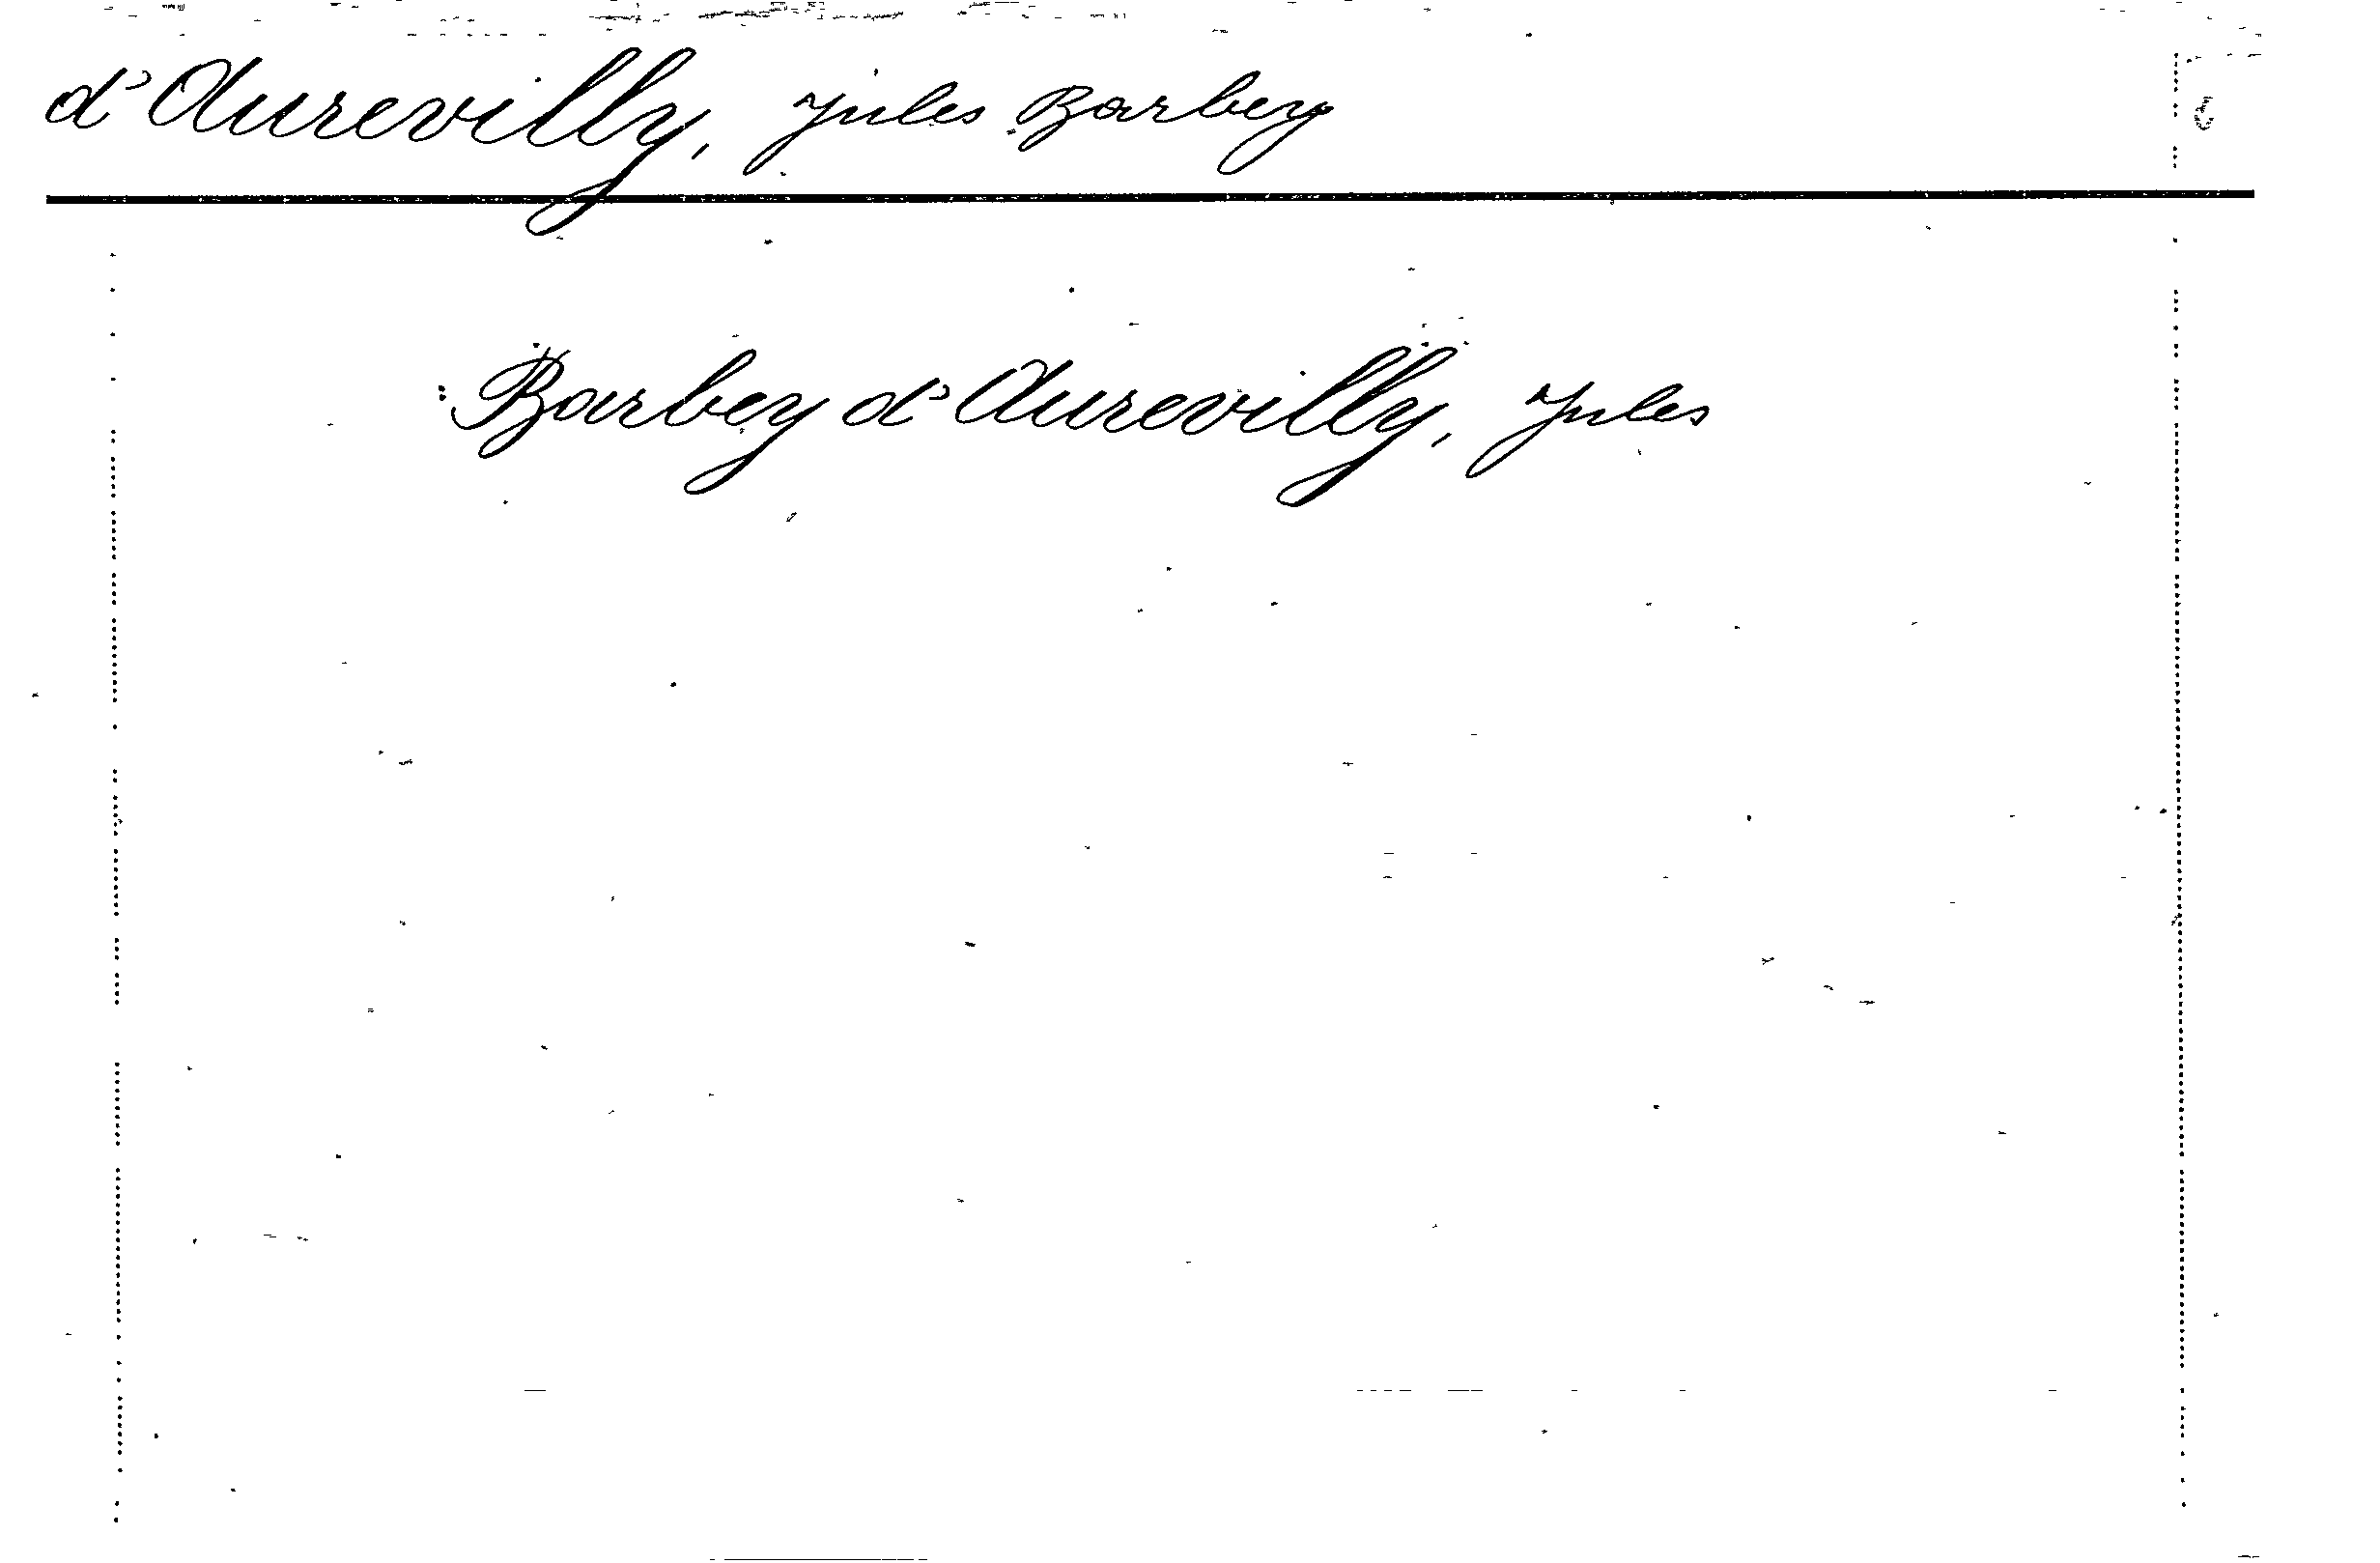 d'Aurevilly, Jules Barbey
: Barbey d'Aurevilly, Jules